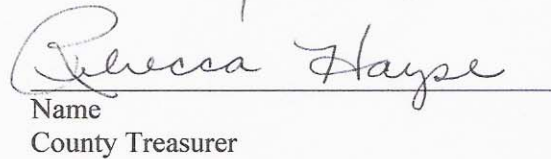 Rebecca Hayse
Name
County Treasurer